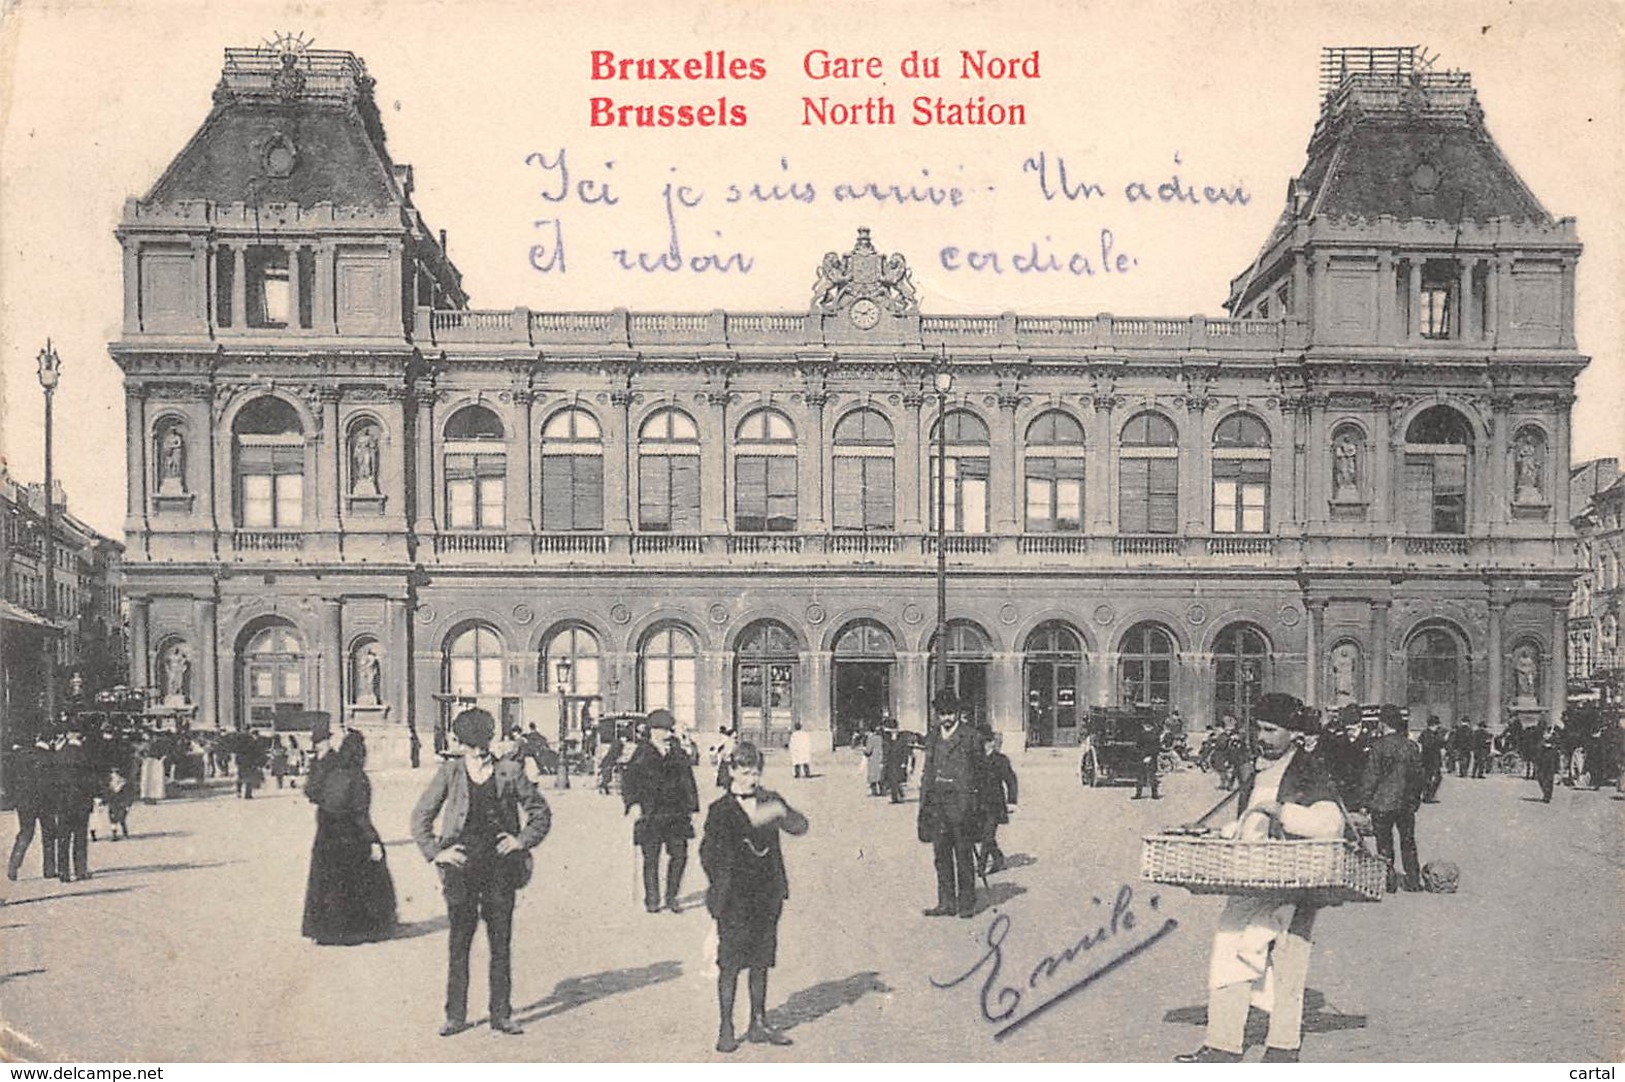 Bruxelles Gare du Nord
Brussels North Station
Ici je suis arrivé. Un adieu
et revoir cordiale.
Emile.
www.delcampe.net
cartal